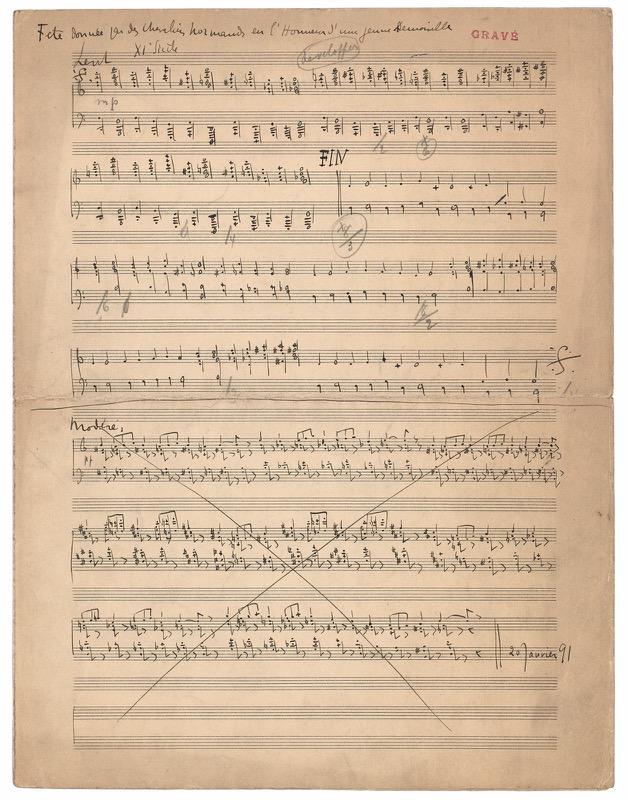 Fête Donnée par des Chevaliers Normands en l'Honneur d'une jeune Demoiselle
GRAVÉ
Lent XIe Siècle
mp
FIN
Modéré,
20 Janvier 91